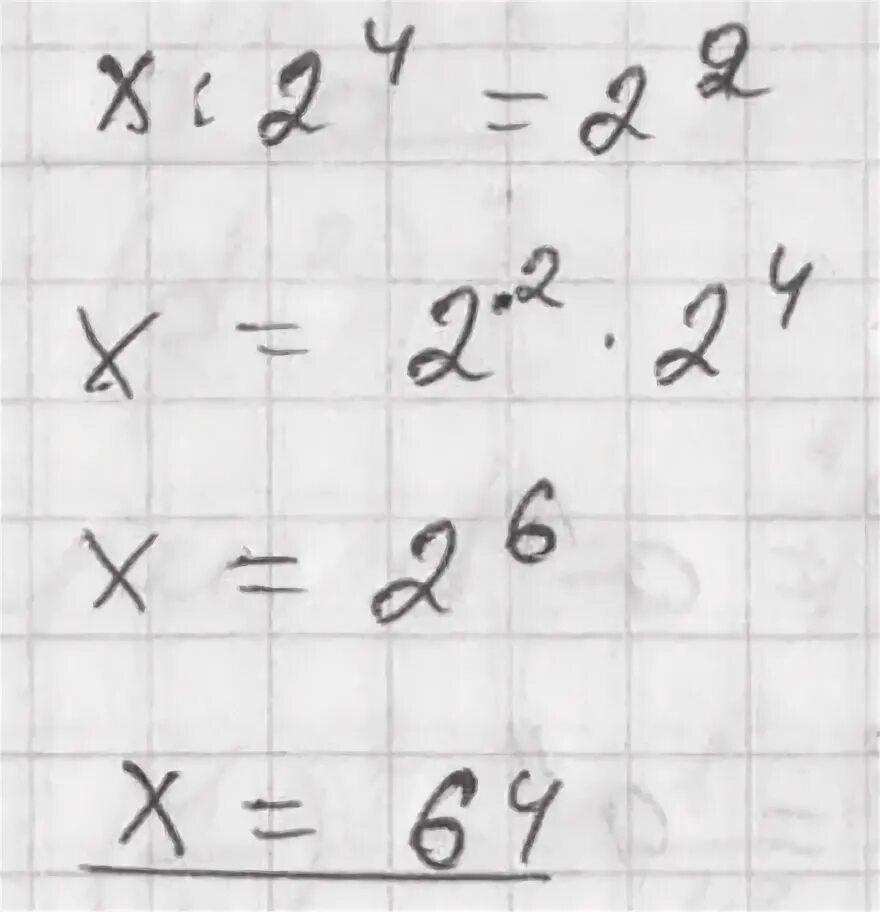 x : 2⁴ = 2²
x = 2² · 2⁴
x = 2⁶
x = 64